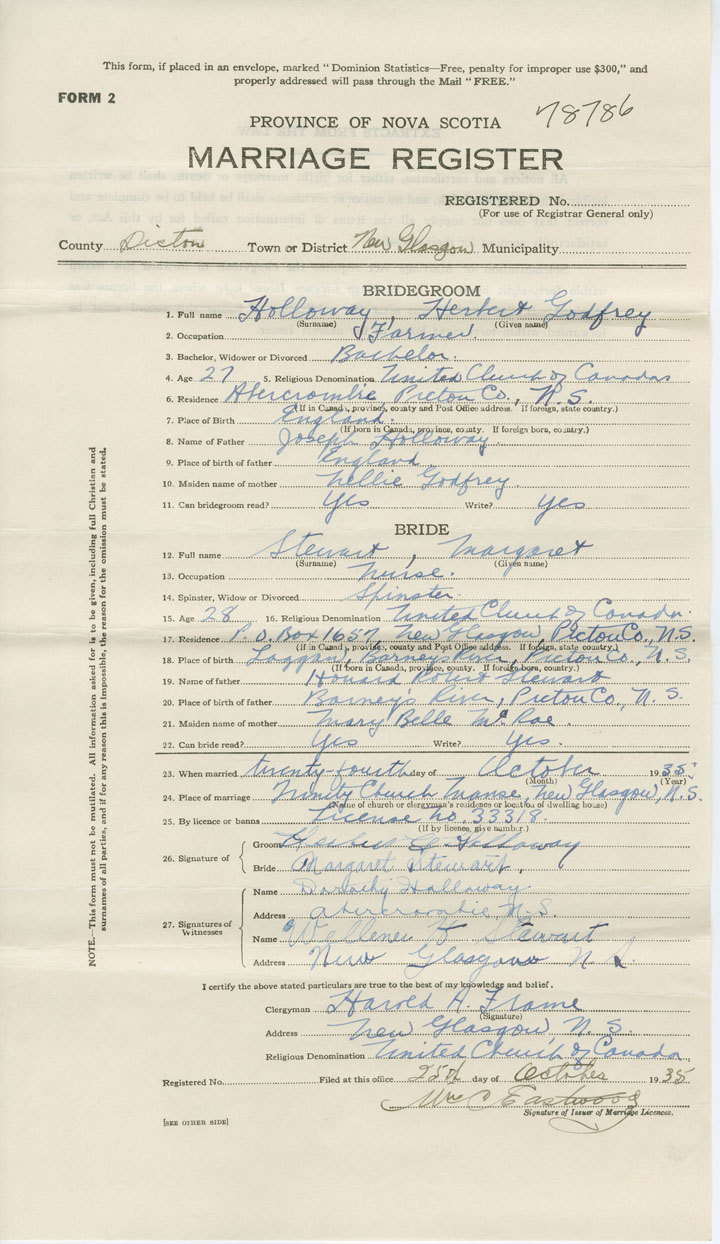 This form, if placed in an envelope, marked "Dominion Statistics—Free, penalty for improper use $300," and
properly addressed will pass through the Mail "FREE."
FORM 2
78786
PROVINCE OF NOVA SCOTIA
MARRIAGE REGISTER
REGISTERED No.
(For use of Registrar General only)
County Pictou Town or District New Glasgow Municipality
BRIDEGROOM
1. Full name Holloway, Herbert Godfrey
(Surname) (Given name)
2. Occupation Farmer.
3. Bachelor, Widower or Divorced Bachelor.
4. Age 27 5. Religious Denomination United Church of Canada
6. Residence Abercrombie Pictou Co., N.S.
(If in Canada, province, county and Post Office address. If foreign, state country.)
7. Place of Birth England.
(If born in Canada, province, county. If foreign born, country.)
8. Name of Father Joseph Holloway.
9. Place of birth of father England.
10. Maiden name of mother Nellie Godfrey
11. Can bridegroom read? Yes Write? Yes
BRIDE
12. Full name Stewart, Margaret
(Surname) (Given name)
13. Occupation Nurse.
14. Spinster, Widow or Divorced Spinster.
15. Age 28 16. Religious Denomination United Church of Canada.
17. Residence P.O. Box 1657, New Glasgow, Pictou Co., N.S.
(If in Canada, province, county and Post Office address. If foreign, state country.)
18. Place of birth Loggan, Barney's River, Pictou Co., N.S.
(If born in Canada, province, county. If foreign born, country.)
19. Name of father Howard Robert Stewart
20. Place of birth of father Barney's River, Pictou Co., N.S.
21. Maiden name of mother Mary Belle McRae.
22. Can bride read? Yes Write? Yes.
23. When married twenty-fourth day of October 1935
(Month) (Year)
24. Place of marriage Trinity Church Manse, New Glasgow, N.S.
(Name of church or clergyman's residence or location of dwelling house)
25. By licence or banns License no. 33318.
(If by licence, give number.)
26. Signature of
Groom Herbert G Holloway
Bride Margaret Stewart.
27. Signatures of Witnesses
Name Dorothy Holloway.
Address Abercrombie, N.S.
Name Stewart
Address New Glasgow N S.
I certify the above stated particulars are true to the best of my knowledge and belief.
Clergyman Harold A. Frame
(Signature)
Address New Glasgow, N.S.
Religious Denomination United Church of Canada
Registered No. Filed at this office 25th day of October 1935
Mrs C Eastwood
Signature of Issuer of Marriage Licences.
[SEE OTHER SIDE]
NOTE.—This form must not be mutilated. All information asked for is to be given, including full Christian and
surnames of all parties, and if for any reason this is impossible, the reason for the omission must be stated.